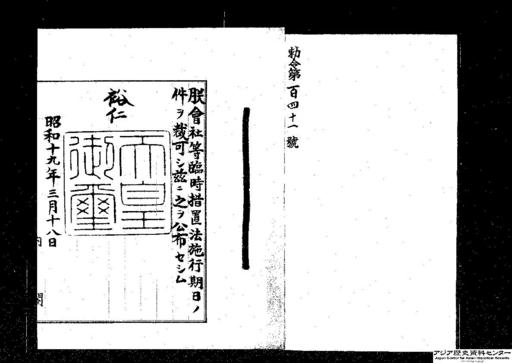 勅令第百四十一號
朕會社等臨時措置法施行期日ノ
件ヲ裁可シ茲ニ之ヲ公布セシム
裕仁
天皇
御璽
昭和十九年三月十八日
内閣
アジア歴史資料センター
Japan Center for Asian Historical Records